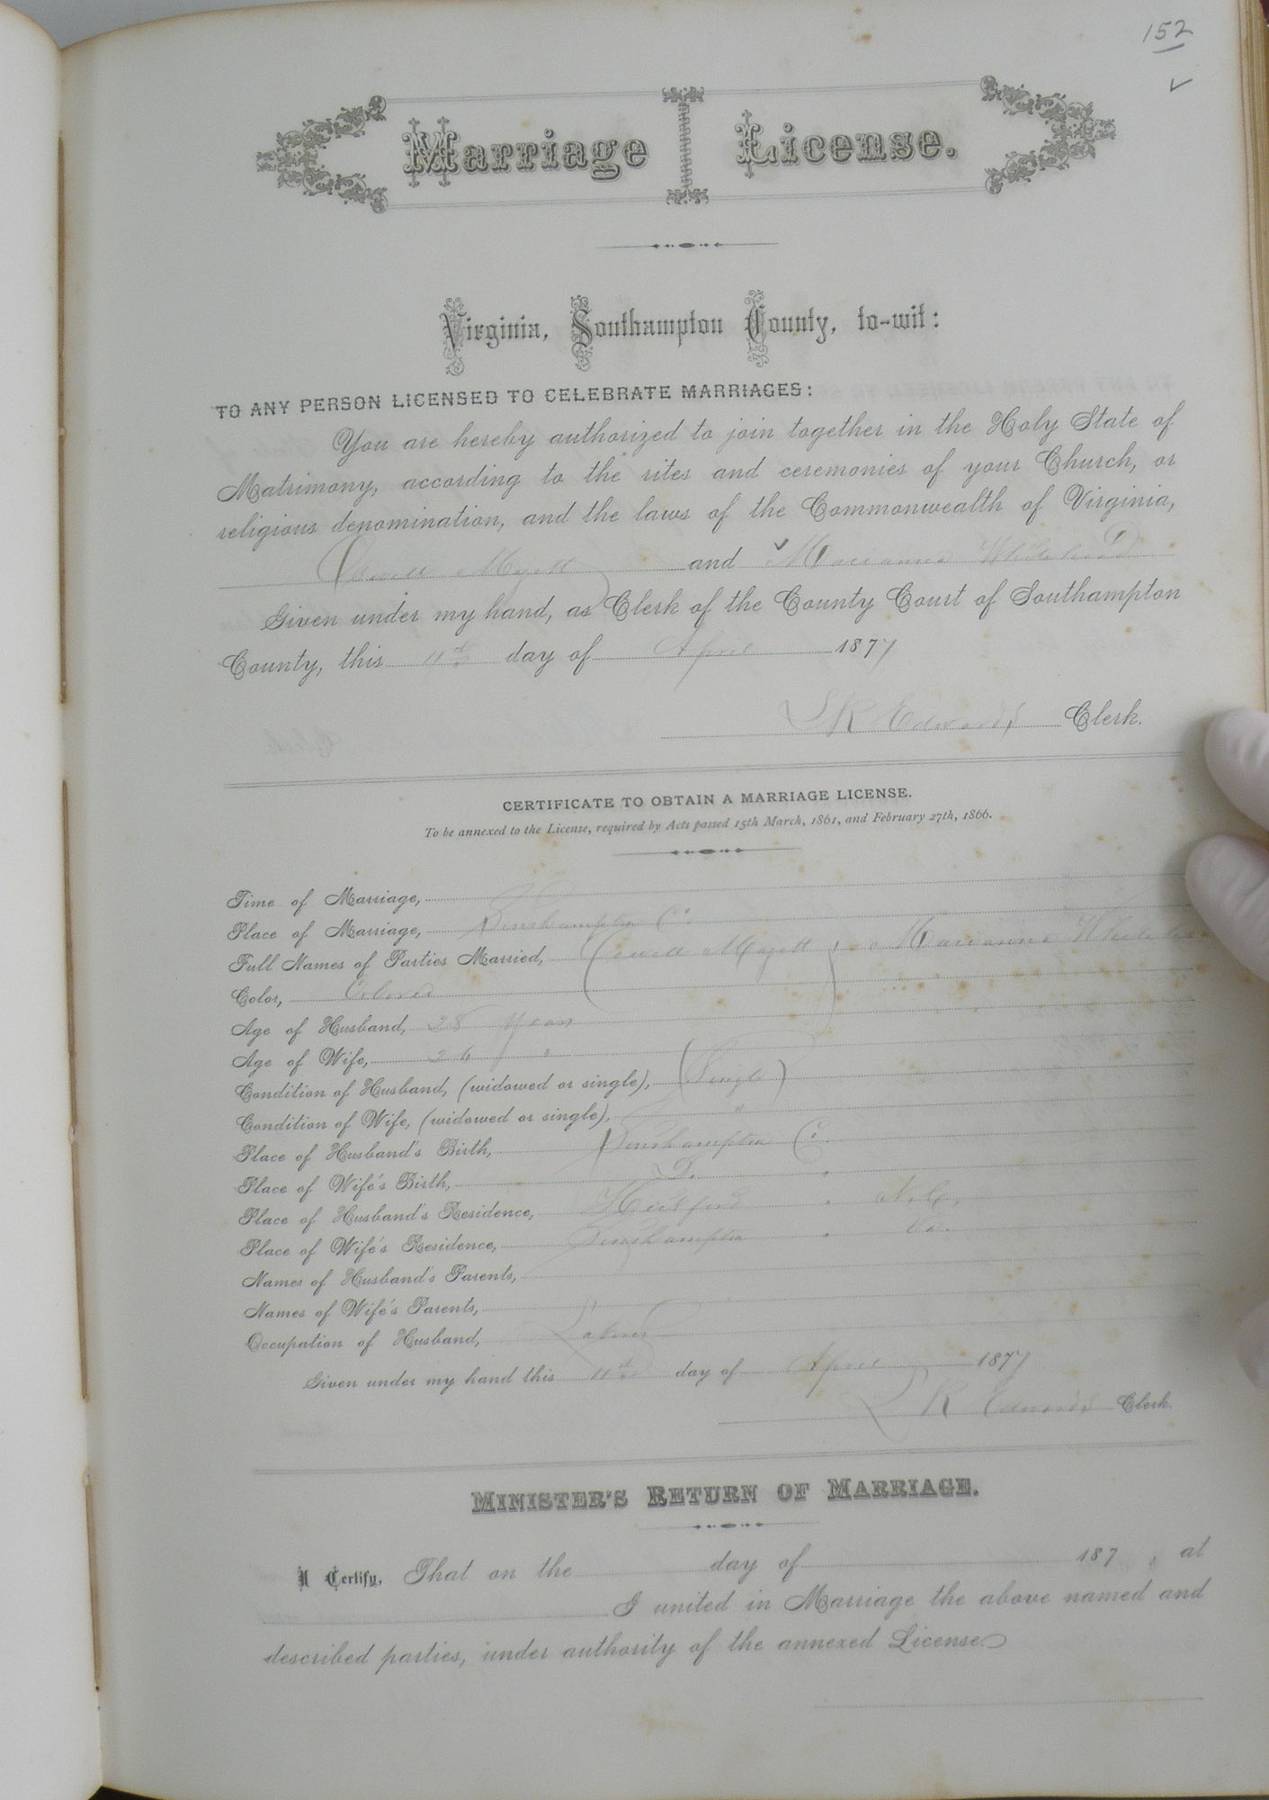 152
Marriage License.
Virginia, Southampton County, to-wit:
TO ANY PERSON LICENSED TO CELEBRATE MARRIAGES:
You are hereby authorized to join together in the Holy State of
Matrimony, according to the rites and ceremonies of your Church, or
religious denomination, and the laws of the Commonwealth of Virginia,
Myett and Marianna
Given under my hand, as Clerk of the County Court of Southampton
County, this 11th day of April 1877
Edwards Clerk.
CERTIFICATE TO OBTAIN A MARRIAGE LICENSE.
To be annexed to the License, required by Acts passed 15th March, 1861, and February 27th, 1866.
Time of Marriage,
Place of Marriage, Southampton Co
Full Names of Parties Married, Marianna
Color, Colored
Age of Husband, 28 Years
Age of Wife, 26 "
Condition of Husband, (widowed or single), Single
Condition of Wife, (widowed or single), "
Place of Husband's Birth, Southampton Co.
Place of Wife's Birth, Do.
Place of Husband's Residence, Hertford " N.C.
Place of Wife's Residence, Southampton " Va.
Names of Husband's Parents,
Names of Wife's Parents,
Occupation of Husband, Laborer
Given under my hand this 11th day of April 1877
R Edwards Clerk.
MINISTER'S RETURN OF MARRIAGE.
I Certify, That on the day of 187 , at
I united in Marriage the above named and
described parties, under authority of the annexed License.